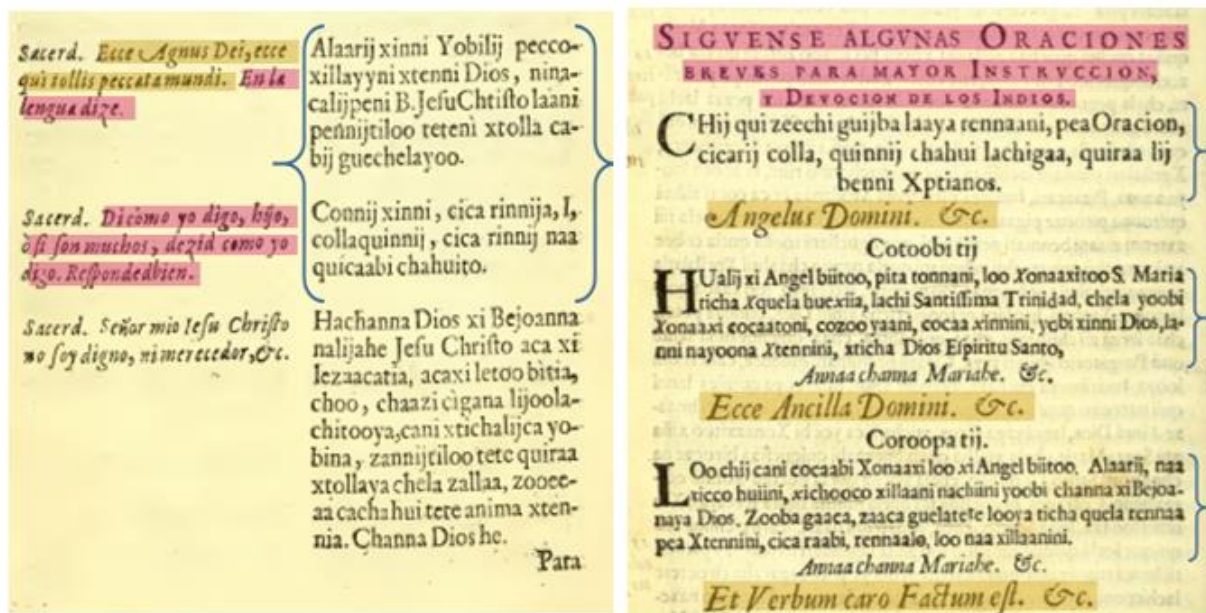 Sacerd. Ecce Agnus Dei, ecce
qui tollis peccata mundi. En la
lengua dize.
Alaarij xinni Yobilij pecco-
xillayyni xtenni Dios, nina-
calijpeni B. Jeſu Chtiſto laani
pennijtiloo teteni xtolla ca-
bij guechelayoo.
Sacerd. Dicòmo yo digo, hijo,
ò ſi ſon muchos, dezid como yo
digo. Reſpondedbien.
Connij xinni, cica rinnija, I,
collaquinnij, cica rinnij naa
quicaabi chahuito.
Sacerd. Señor mio Ieſu Chriſto
no ſoy digno, ni merecedor, &c.
Hachanna Dios xi Bejoanna
nalijahe Jeſu Chriſto aca xi
lezaacatia, acaxi letoo bitia,
choo, chaazi cigana lijoola-
chitooya, cani xtichalijca yo-
bina, zannijtiloo tete quiraa
xtollaya chela zallaa, zooee-
aa cachahui tete anima xten-
nia. Channa Dios he.
Para
SIGVENSE ALGVNAS ORACIONES
BREVES PARA MAYOR INSTRVCCION,
Y DEVOCION DE LOS INDIOS.
CHij qui zeechi guijba laaya rennaani, pea Oracion,
cicarij colla, quinnij chahui lachigaa, quiraa lij
benni Xptianos.
Angelus Domini. &c.
Cotoobi tij
HUalij xi Angel biitoo, pita tonnani, loo Xonaaxitoo S. Maria
ticha Xquela huexiia, lachi Santiſſima Trinidad, chela yoobi
Xonaaxi cocaatoni, cozoo yaani, cocaa xinnini, yobi xinni Dios, la-
nni nayoona Xtennini, xticha Dios Eſpiritu Santo,
Annaa channa Mariahe. &c.
Ecce Ancilla Domini. &c.
Coroopa tij.
LOo chij cani cocaabi Xonaaxi loo xi Angel biitoo. Alaarii, naa
xicco huiini, xichooco xillaani nachiini yoobi channa xi Bejoa-
naya Dios. Zooba gaaca, zaaca guelatete looya ticha quela rennaa
pea Xtennini, cica raabi, rennaalo, loo naa xillaanini.
Annaa channa Mariahe. &c.
Et Verbum caro Factum eſt. &c.